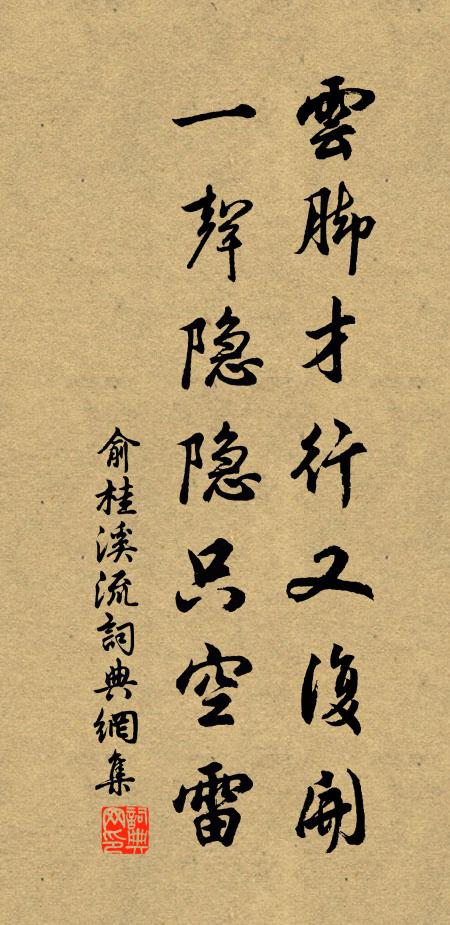 雲脚才行又復開
一聲隐隐只空雷
俞桂溪流詞典網集
詞典網印